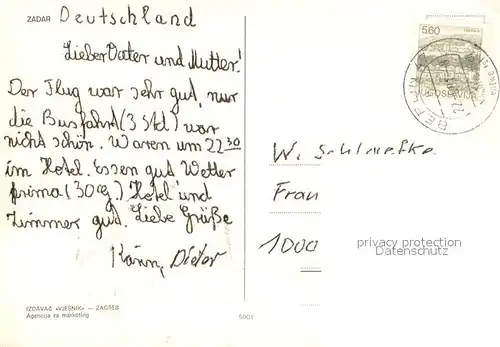 ZADAR Deutschland
Lieber Vater und Mutter!
Der Flug war sehr gut, nur
die Busfahrt (3 Std) war
nicht schön. Waren um 22 30
im Hotel. Essen gut Wetter
prima (30 Cg.) Hotel und
Zimmer gut. Liebe Grüße
Karin, Dieter
IZDAVAČ »VJESNIK« — ZAGREB
Agencija za marketing
5001
560
JUGOSLAVIJA
W.
Frau
1000
privacy protection
Datenschutz